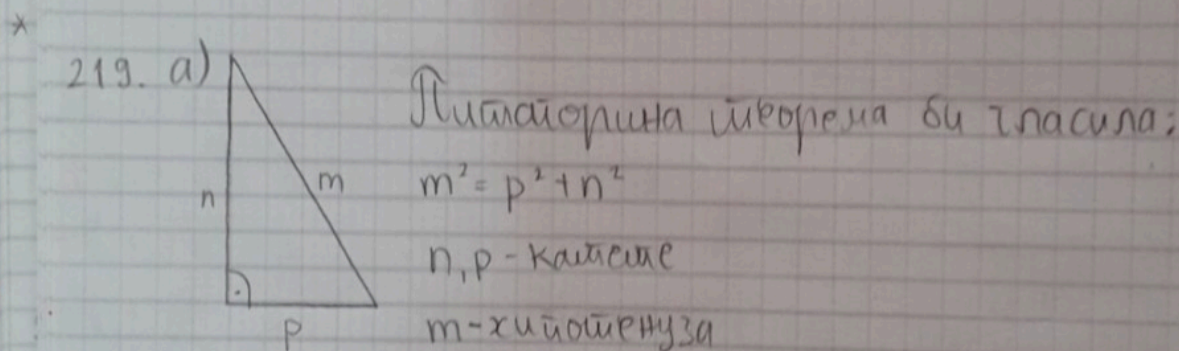 *
219. а)
Питагорина теорема би гласила:
m² = p² + n²
n, p - катете
m - хипотенуза
n
m
p